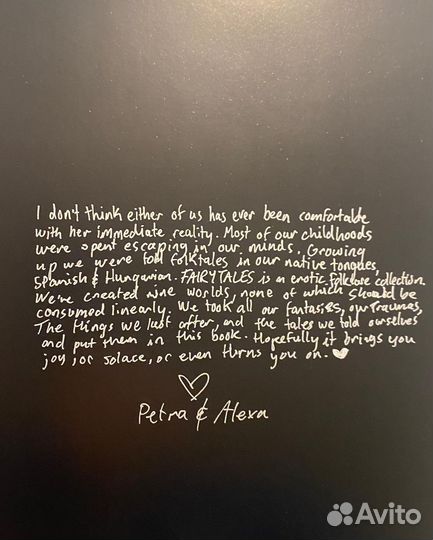 I don't think either of us has ever been comfortable
with her immediate reality. Most of our childhoods
were spent escaping in our minds. Growing
up we were told folktales in our native tongues,
Spanish & Hungarian. FAIRYTALES is an erotic folklore collection.
We've created nine worlds, none of which should be
consumed linearly. We took all our fantasies, our traumas,
The things we lust after, and the tales we told ourselves
and put them in this book. Hopefully it brings you
joy, or solace, or even turns you on. ♥
♡
Petra & Alexa
Avito